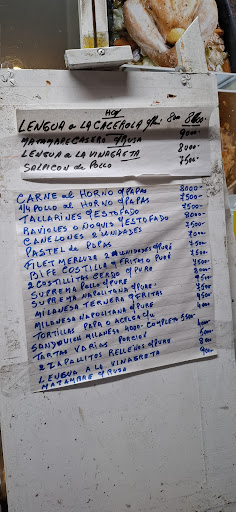 HOY
LENGUA a LA CACEROLA 8800-
MATAMBRE CASERO C/RUSA 9000-
LENGUA a LA VINAGRETA 8000-
SALPICON de POLLO 7500-
CARNE al HORNO C/PAPAS 8000-
1/4 POLLO al HORNO C/PAPAS 7500-
TALLARINES C/ESTOFADO 7500-
RAVIOLES O ÑOQUIS C/ESTOFADO 8000-
CANELONES 2 UNIDADES 7500-
PASTEL de PAPAS 7000-
FILET MERLUZA 2 UNIDADES C/PURÉ
BIFE COSTILLA C/FRITAS O PURÉ
2 COSTILLITAS CERDO C/PURÉ
SUPREMA POLLO C/PURÉ
SUPREMA NAPOLITANA C/PURÉ
MILANESA TERNERA C/FRITAS
MILANESA NAPOLITANA C/PURÉ
TORTILLAS PAPA O ACELGA C/U
SANDWICH MILANESA 4000- COMPLETO 5500
TARTAS VARIAS PORCION
2 ZAPALLITOS RELLENOS C/PURÉ
LENGUA A LA VINAGRETA
MATAMBRE C/RUSA